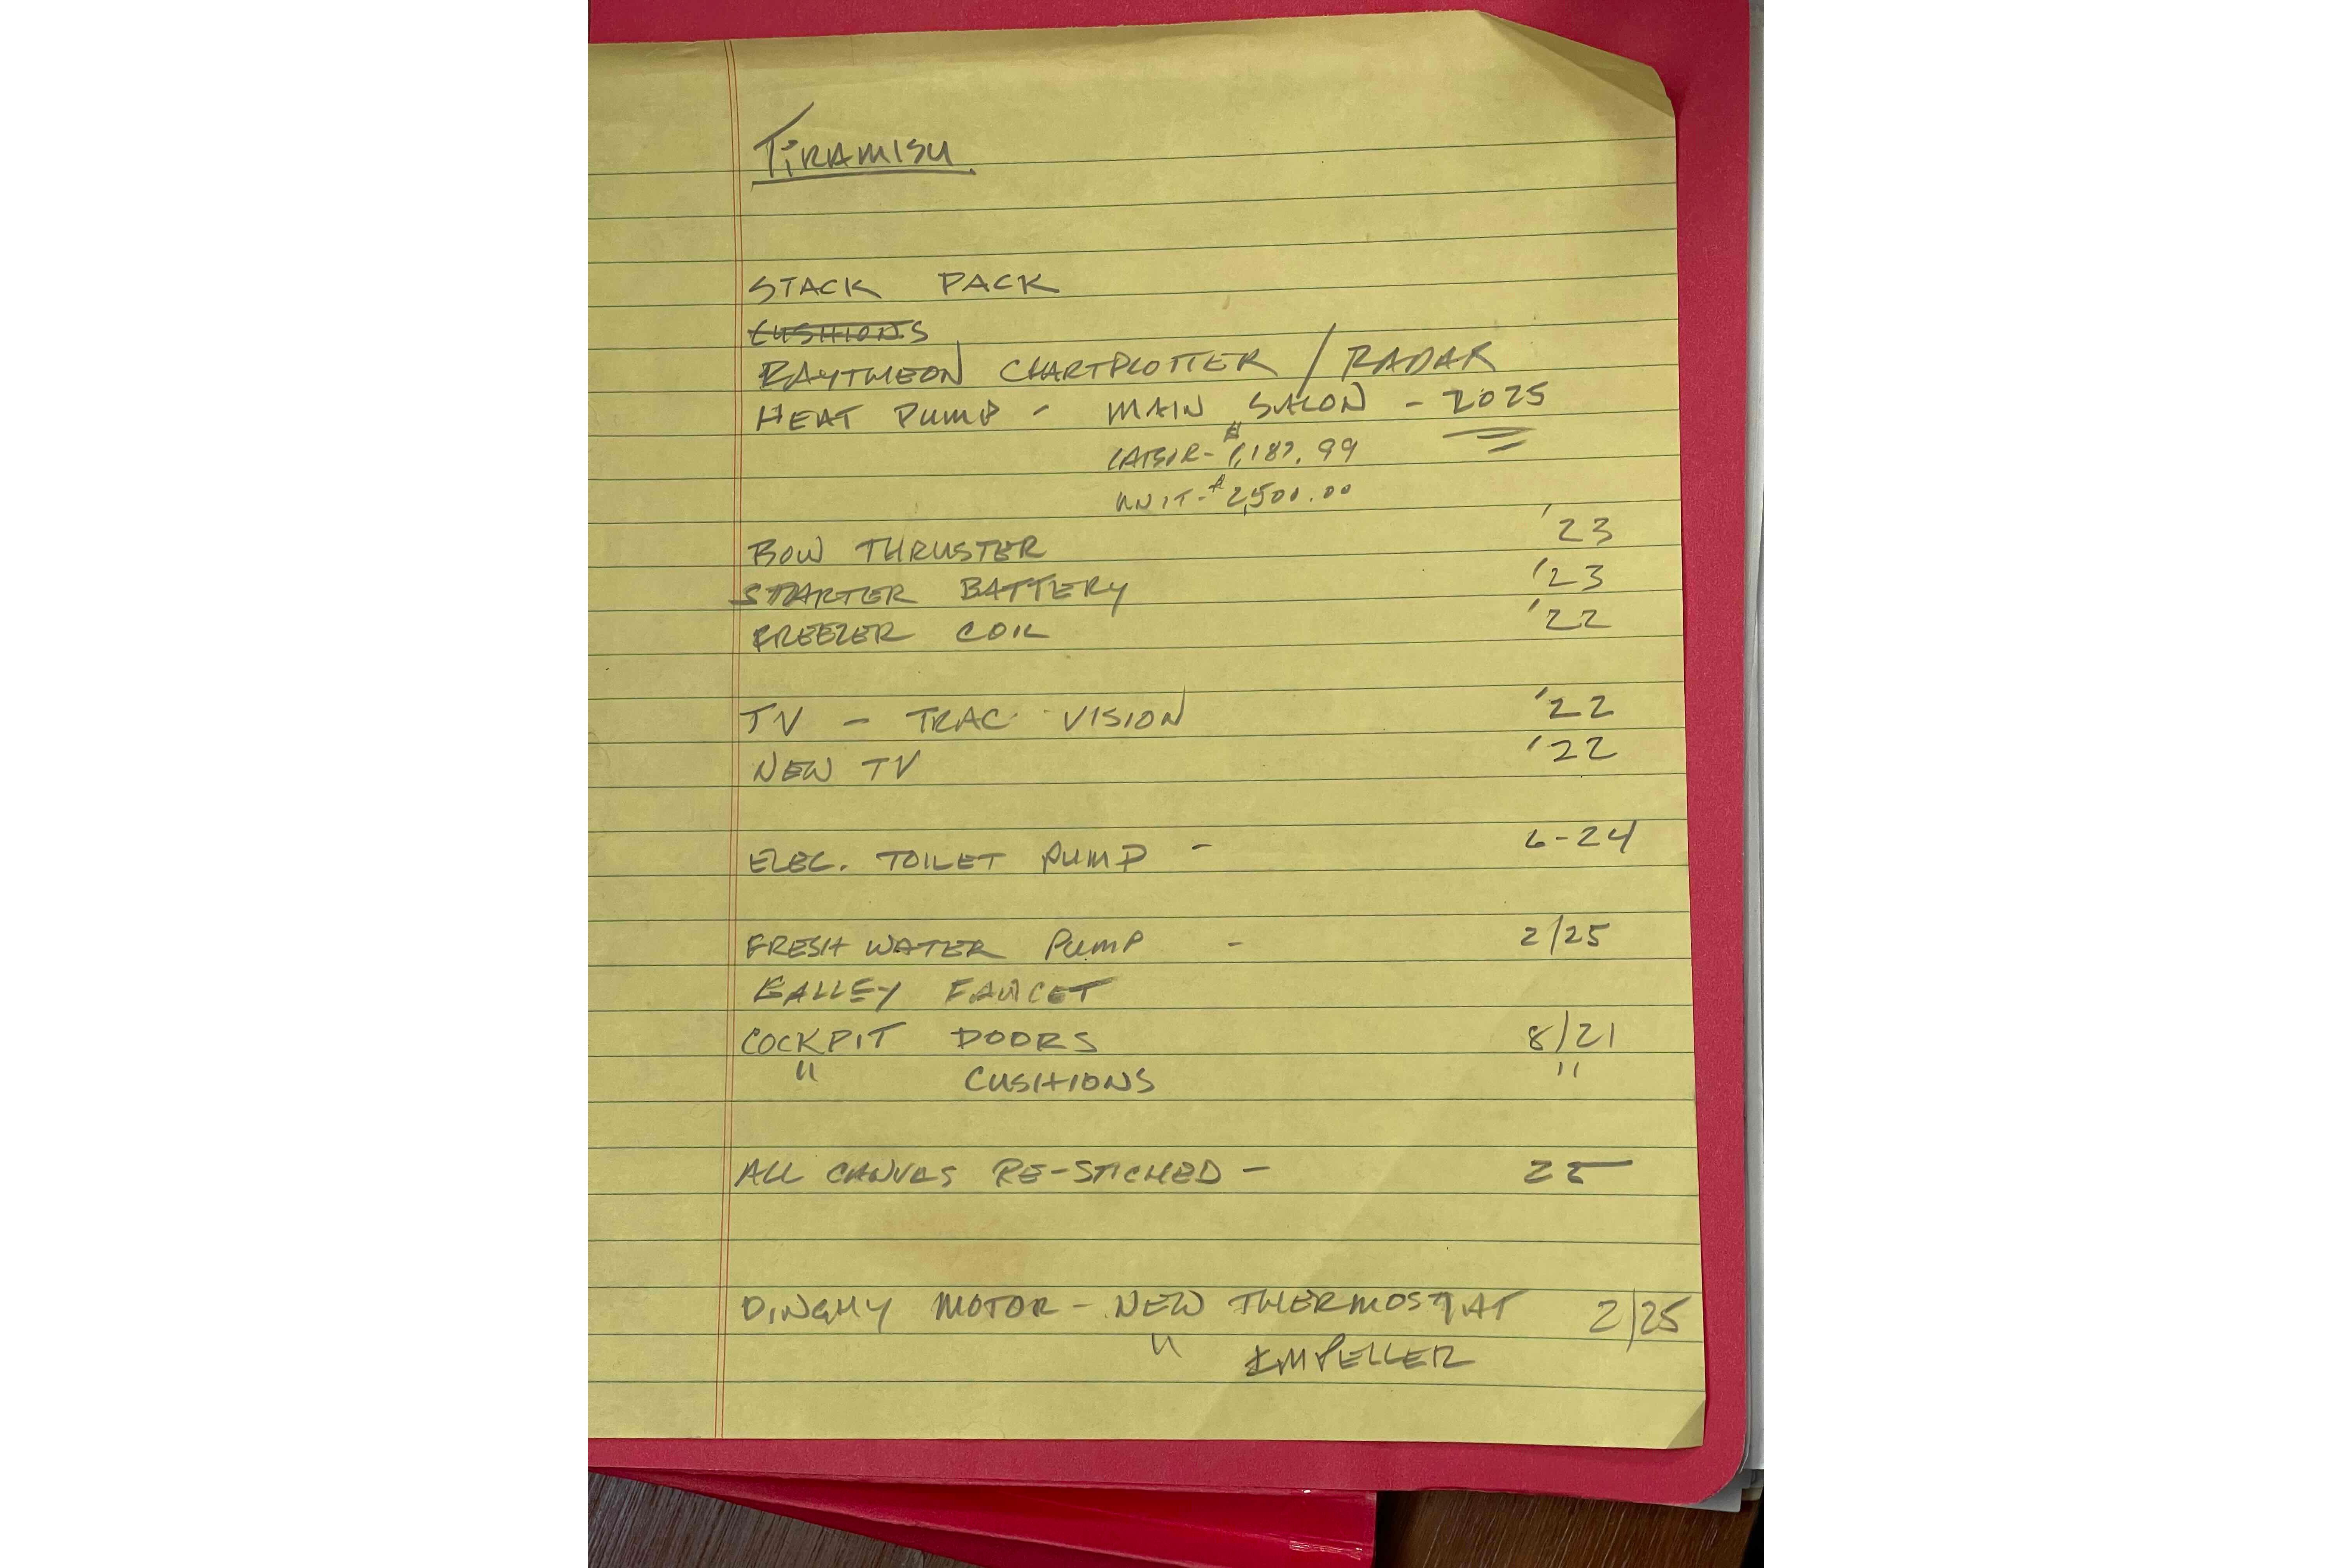 TiRAMISU
STACK PACK
CUSHIONS
RAYTHEON CHARTPLOTTER / RADAR
HEAT PUMP - MAIN SALON - 2025
LABOR - $1,187.99
UNIT - $2,500.00
BOW THRUSTER '23
STARTER BATTERY '23
FREEZER COIL '22
TV - TRAC VISION '22
NEW TV '22
ELEC. TOILET PUMP - 6-24
FRESH WATER PUMP - 2/25
GALLEY FAUCET
COCKPIT DOORS 8/21
" CUSHIONS "
ALL CANVAS RE-STICHED - 25
DINGHY MOTOR - NEW THERMOSTAT 2/25
" IMPELLER